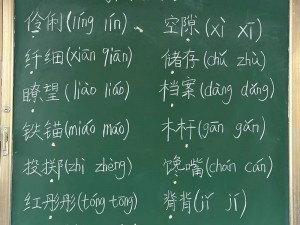 伶俐(líng lín) 空隙(xì xī)
纤细(xiān qiān) 储存(chǔ zhù)
瞭望(liào liáo) 档案(dàng dǎng)
铁锚(miáo máo) 木杆(gān gǎn)
投掷(zhì zhèng) 馋嘴(chán cán)
红彤彤(tóng tōng) 脊背(jǐ jí)